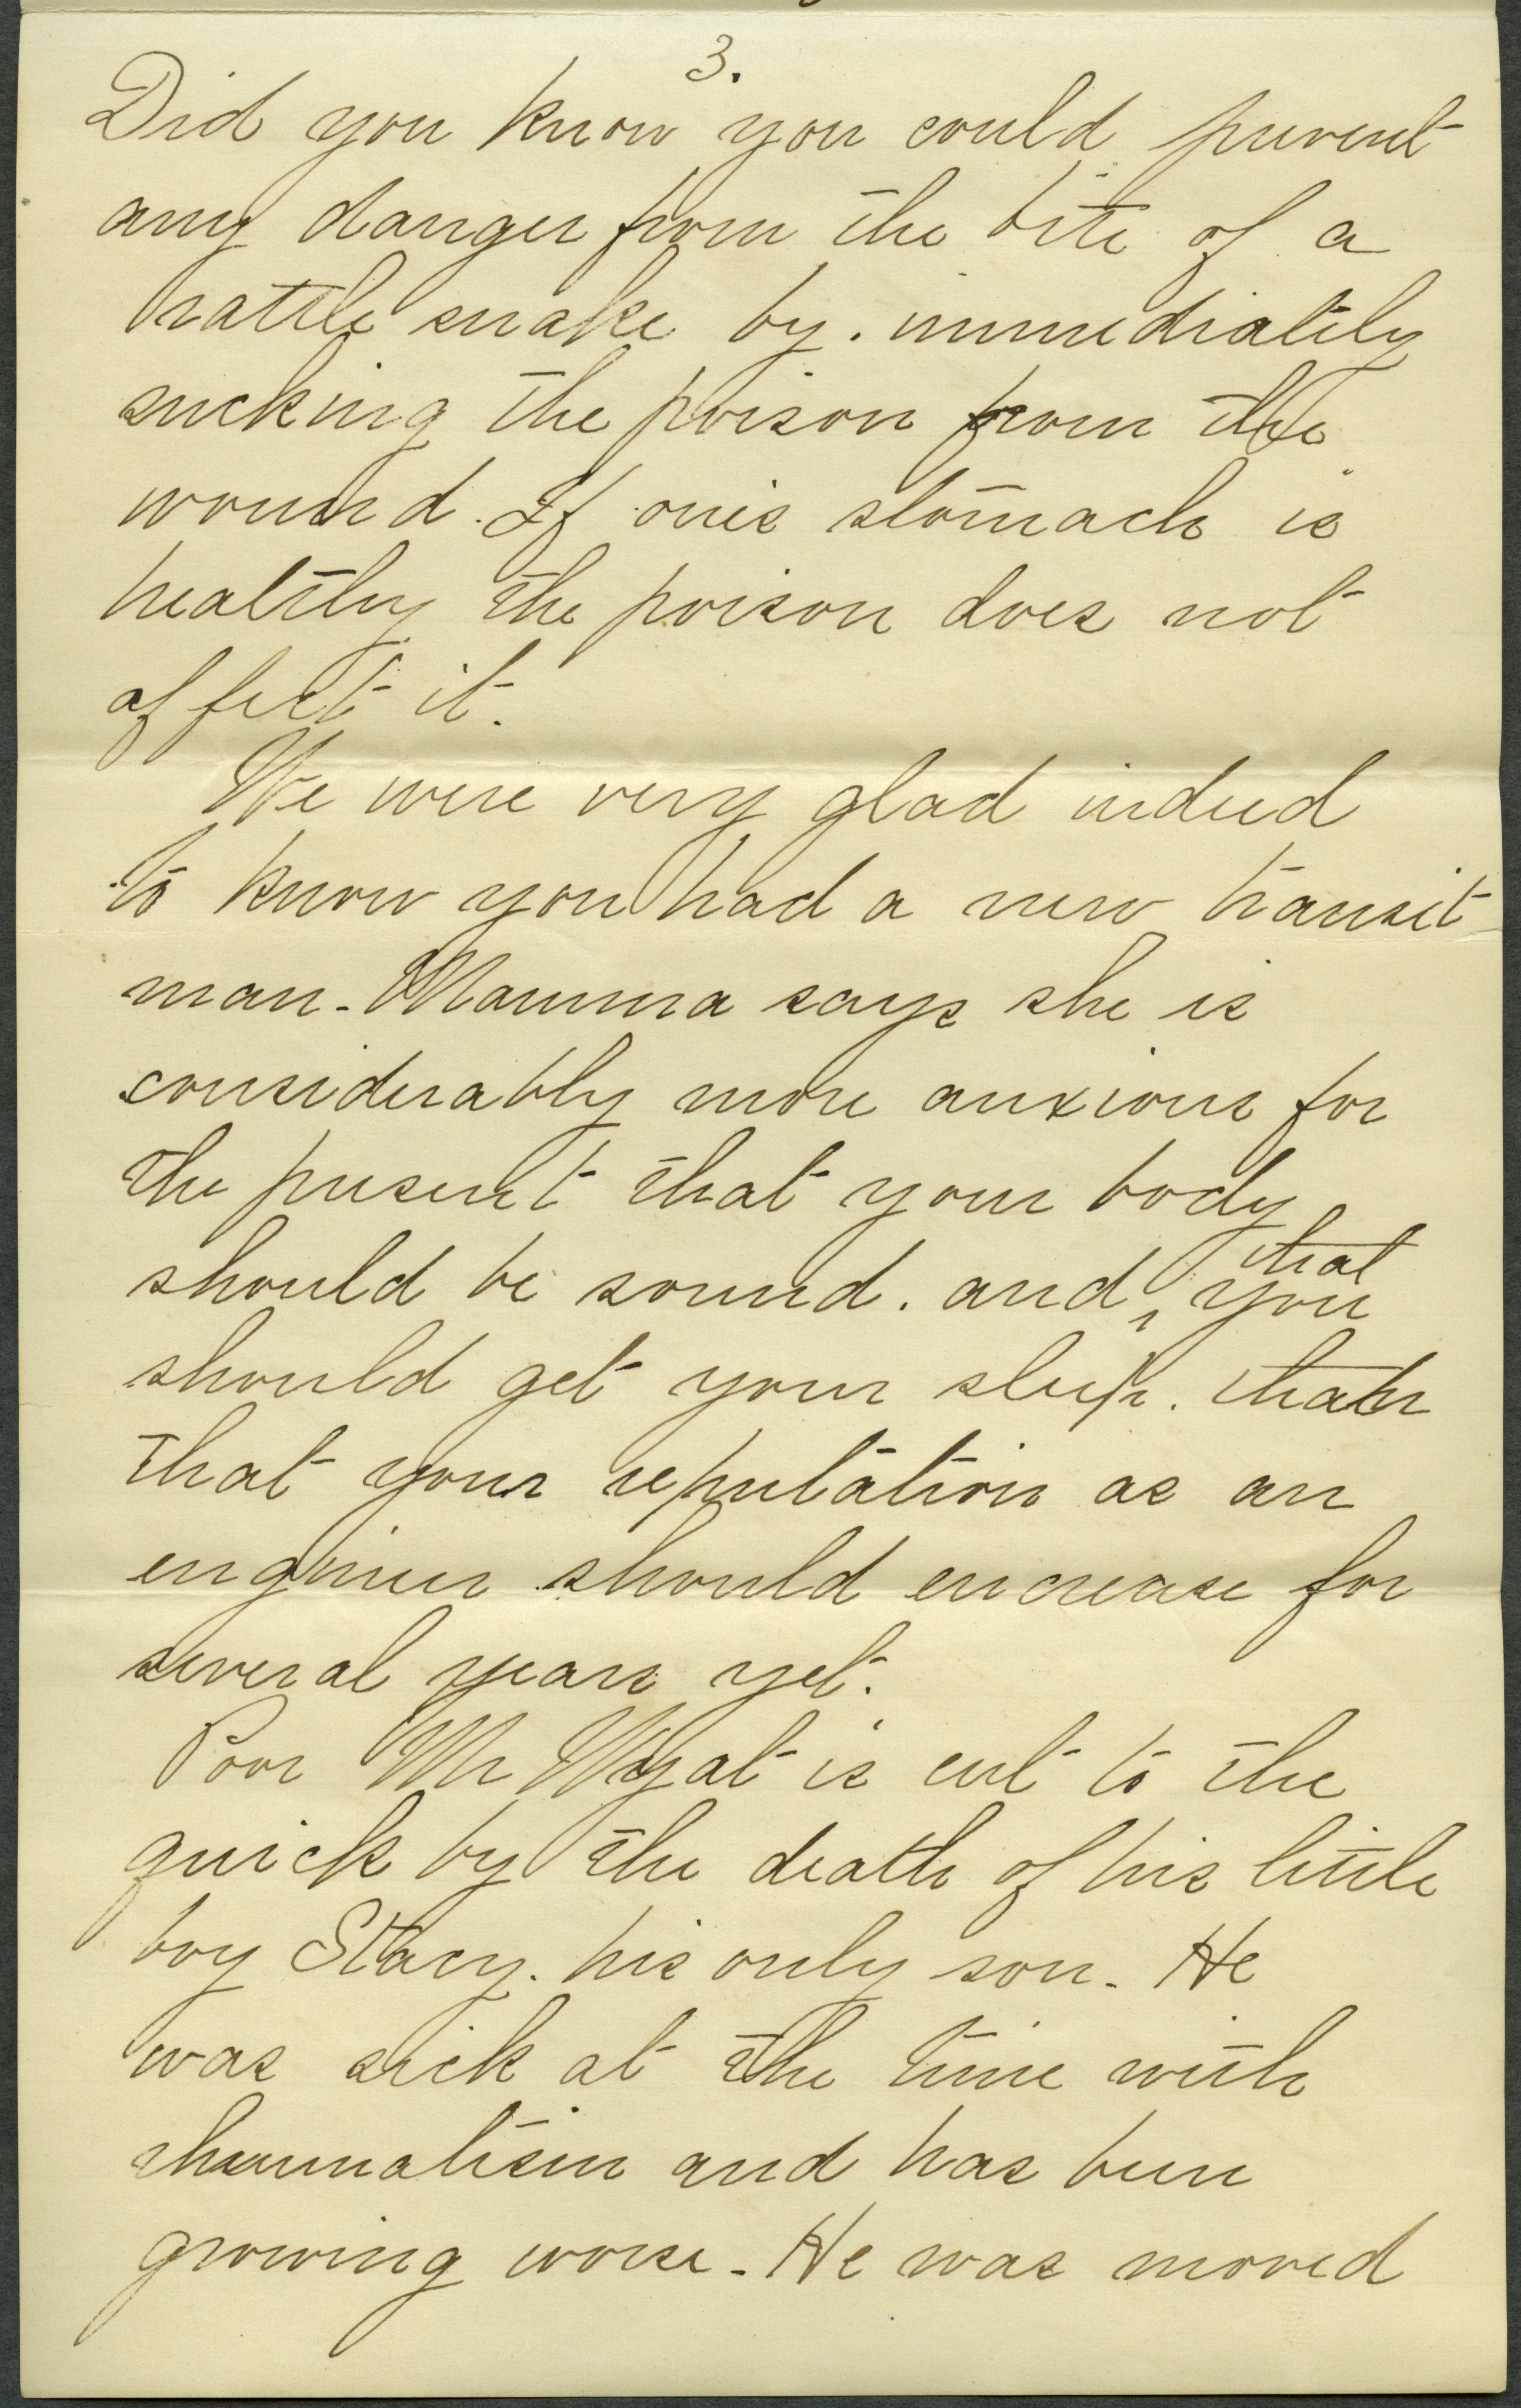 3.
Did you know you could prevent
any danger from the bite of a
rattle snake by. immediately
sucking the poison from the
wound. If one's stomach is
healthy the poison does not
affect it.
We were very glad indeed
to know you had a new transit
man - Mamma says she is
considerably more anxious for
the present that your body
that
should be sound. and ‸ you
should get your sleep. than
that your reputation as an
engineer should encrease for
several years yet.
Poor Mr Wyat is cut to the
quick by the death of his little
boy Stacy. his only son - He
was sick at the time with
rheumatism and has been
growing worse - He was moved